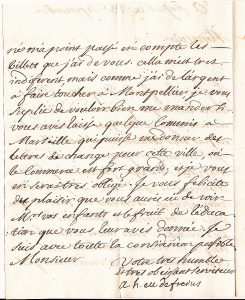 ne ma point passé en compte les
billets que j'ai de vous. cella m'est tres
indiferent mais comme j'ai de l'argent
a faire toucher a Montpellier je vous
suplie de vouloir bien me mander si
vous aves laissé quelque commis a
Marseille qui puisse me donner des
lettres de change pour cette ville, ou
le commerce est fort grand, et je vous
en serai tres obligé. je vous felicite
du plaisir que vous aures eu de voir
Mrs vos enfants et le fruit de leduca
tion que vous leur aves donnée. je
suis avec toutte la consideration possible
Monsieur
Votre tres humble
et tres obeissant serviteur